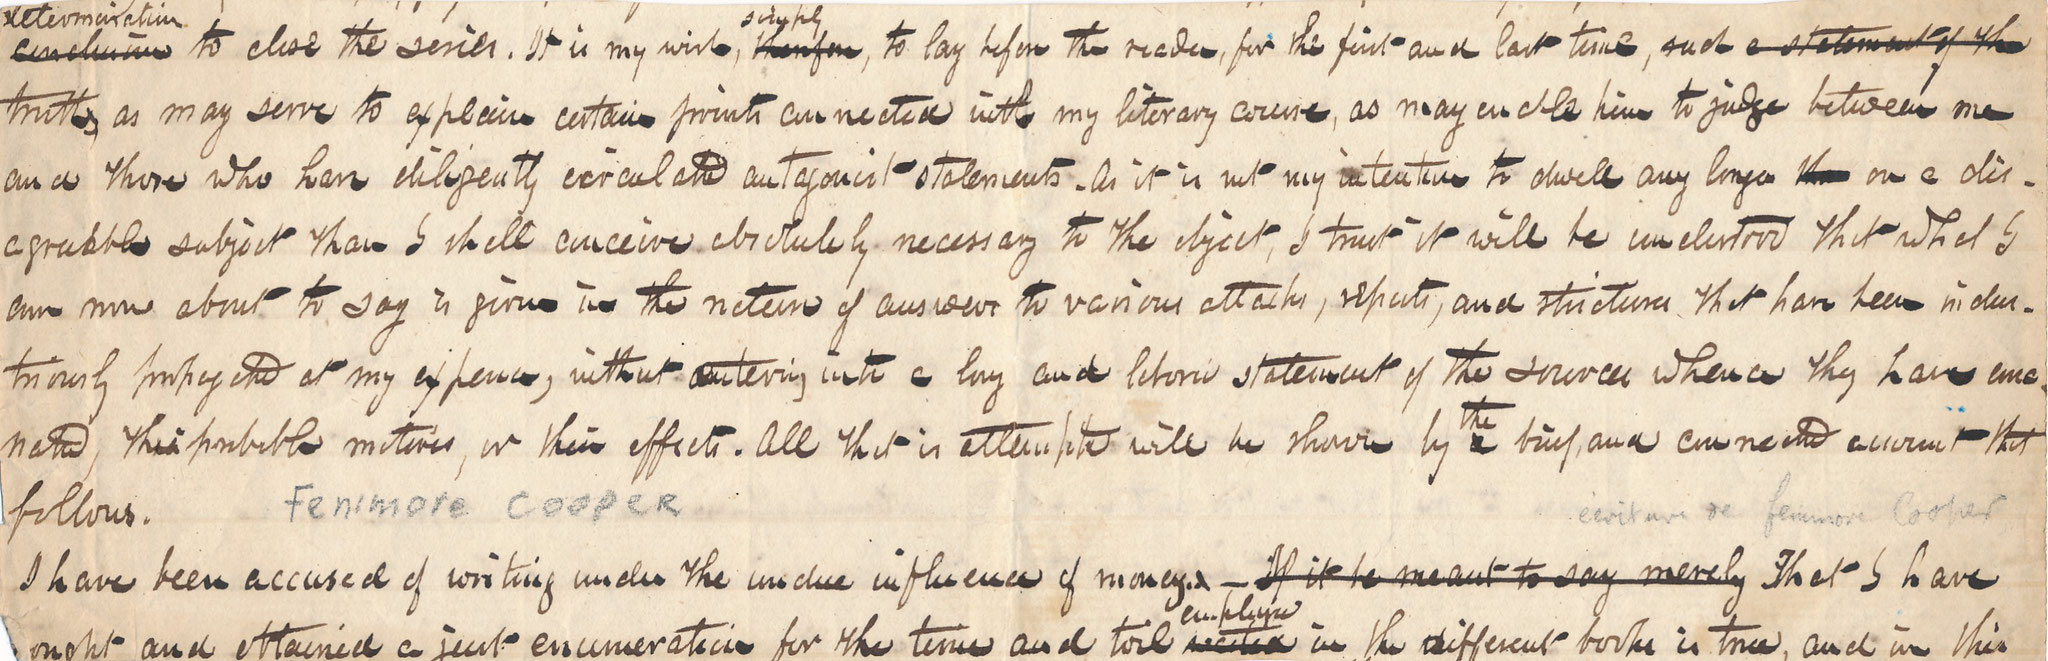 determination simply
conclusion to close the series. It is my wish, therefore, to lay before the reader, for the first and last time, such a statement of the
truth, as may serve to explain certain points connected with my literary course, as may enable him to judge between me
and those who have diligently circulated antagonist statements. As it is not my intention to dwell any longer on a dis-
agreeable subject than I shall conceive absolutely necessary to the object, I trust it will be understood that what I
am now about to say is given in the nature of answers to various attacks, reports, and strictures that have been indus-
triously propagated at my expense, without entering into a long and laboured statement of the sources whence they have ema-
nated, their probable motives, or their effects. All that is attempted will be shown by the a brief, and connected account that
follows.
Fenimore Cooper écriture de fenimore Cooper
I have been accused of writing under the undue influence of money. - If it be meant to say merely That I have
employed
ought and obtained a just enumeration for the time and toil in the different books is true, and in this